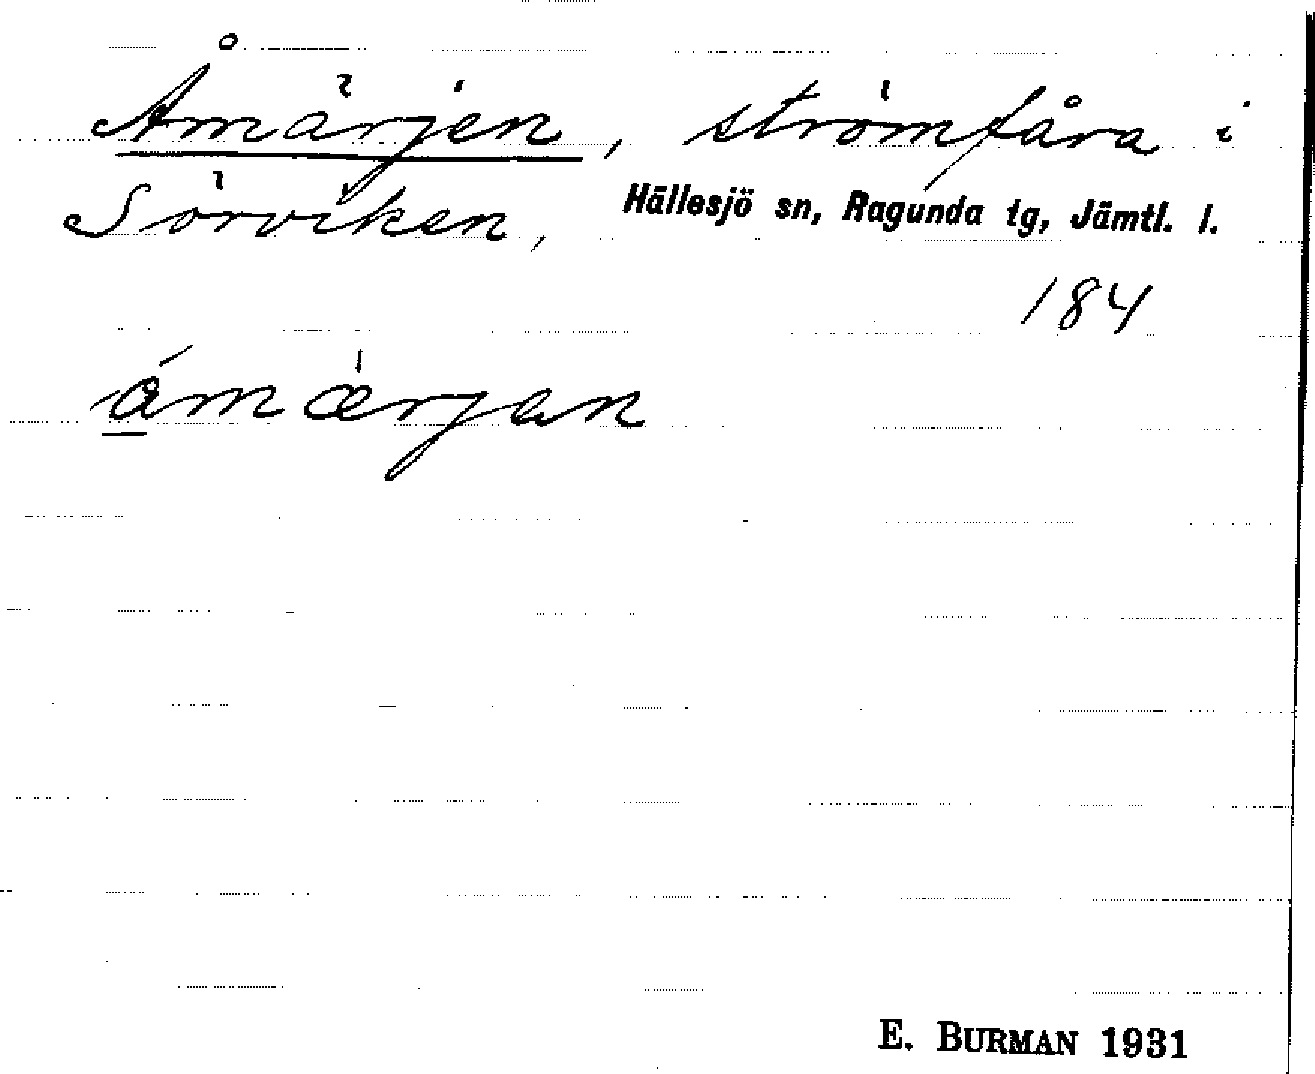 Åmärjen, strömfåra i
Sörviken, Hällesjö sn, Ragunda tg, Jämtl. l.
184
åmærjan
E. BURMAN 1931